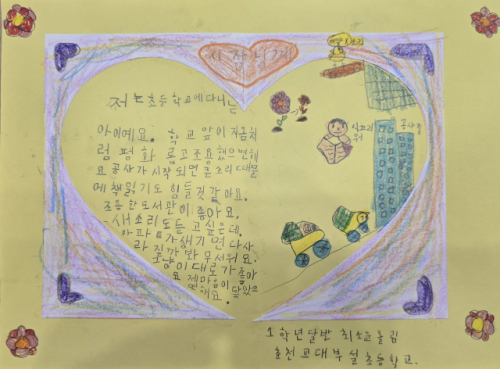 시장님께
저는 초등학교에 다니는
아이예요. 학교 앞이 지금처
럼 평화롭고 조용했으면 해
요 공사가 시작되면 큰소리 때문
에 책 읽기도 힘들것 같아요.
조용한 도서관이 좋아요.
새소리도 듣고 싶은데,
아파트가 생기면 다 사
라질까봐 무서워요.
모양이대로가 좋아
요 제 마음이 닿았으
해요.
시끄러워
공사중
1학년 달반 최소교 올림
춘천교대부설초등학교.